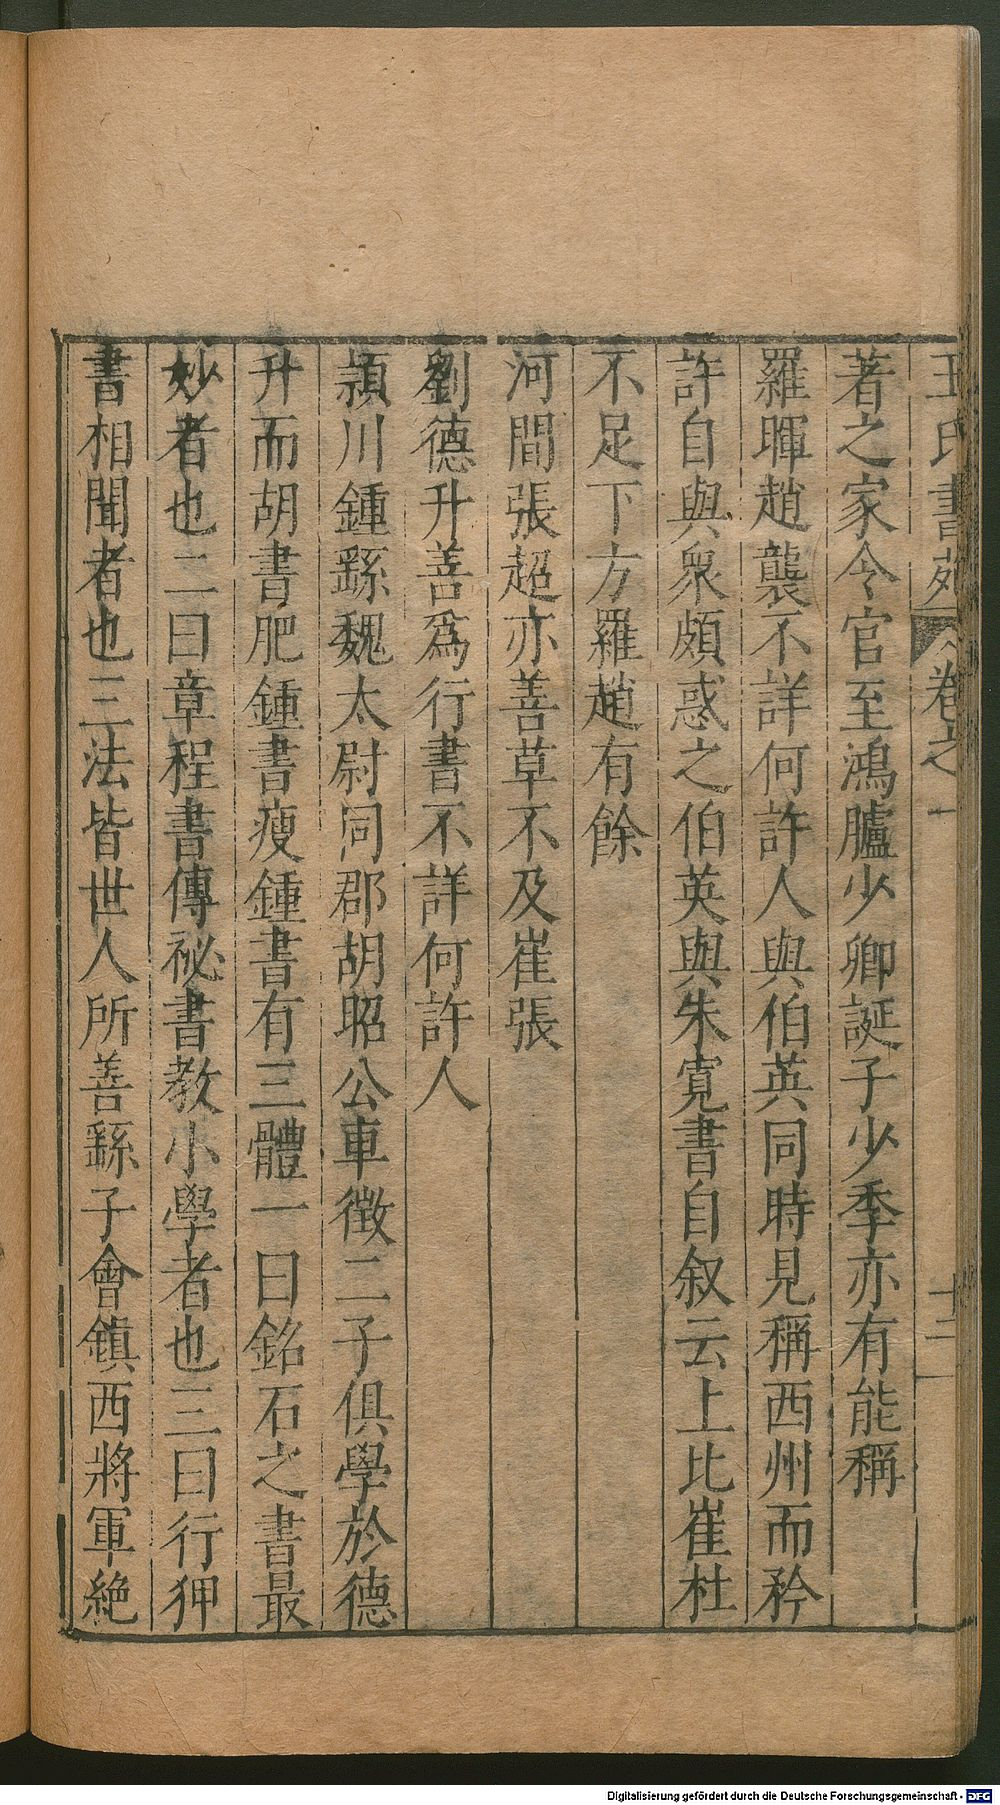 王氏書苑 卷之一 十二
著之家令官至鴻臚少卿誕子少季亦有能稱
羅暉趙襲不詳何許人與伯英同時見稱西州而矜
許自與衆頗惑之伯英與朱寬書自叙云上比崔杜
不足下方羅趙有餘
河間張超亦善草不及崔張
劉德升善爲行書不詳何許人
潁川鍾繇魏太尉同郡胡昭公車徵二子俱學於德
升而胡書肥鍾書瘦鍾書有三體一曰銘石之書最
妙者也二曰章程書傳祕書教小學者也三曰行狎
書相聞者也三法皆世人所善繇子會鎮西將軍絶
Digitalisierung gefördert durch die Deutsche Forschungsgemeinschaft - DFG